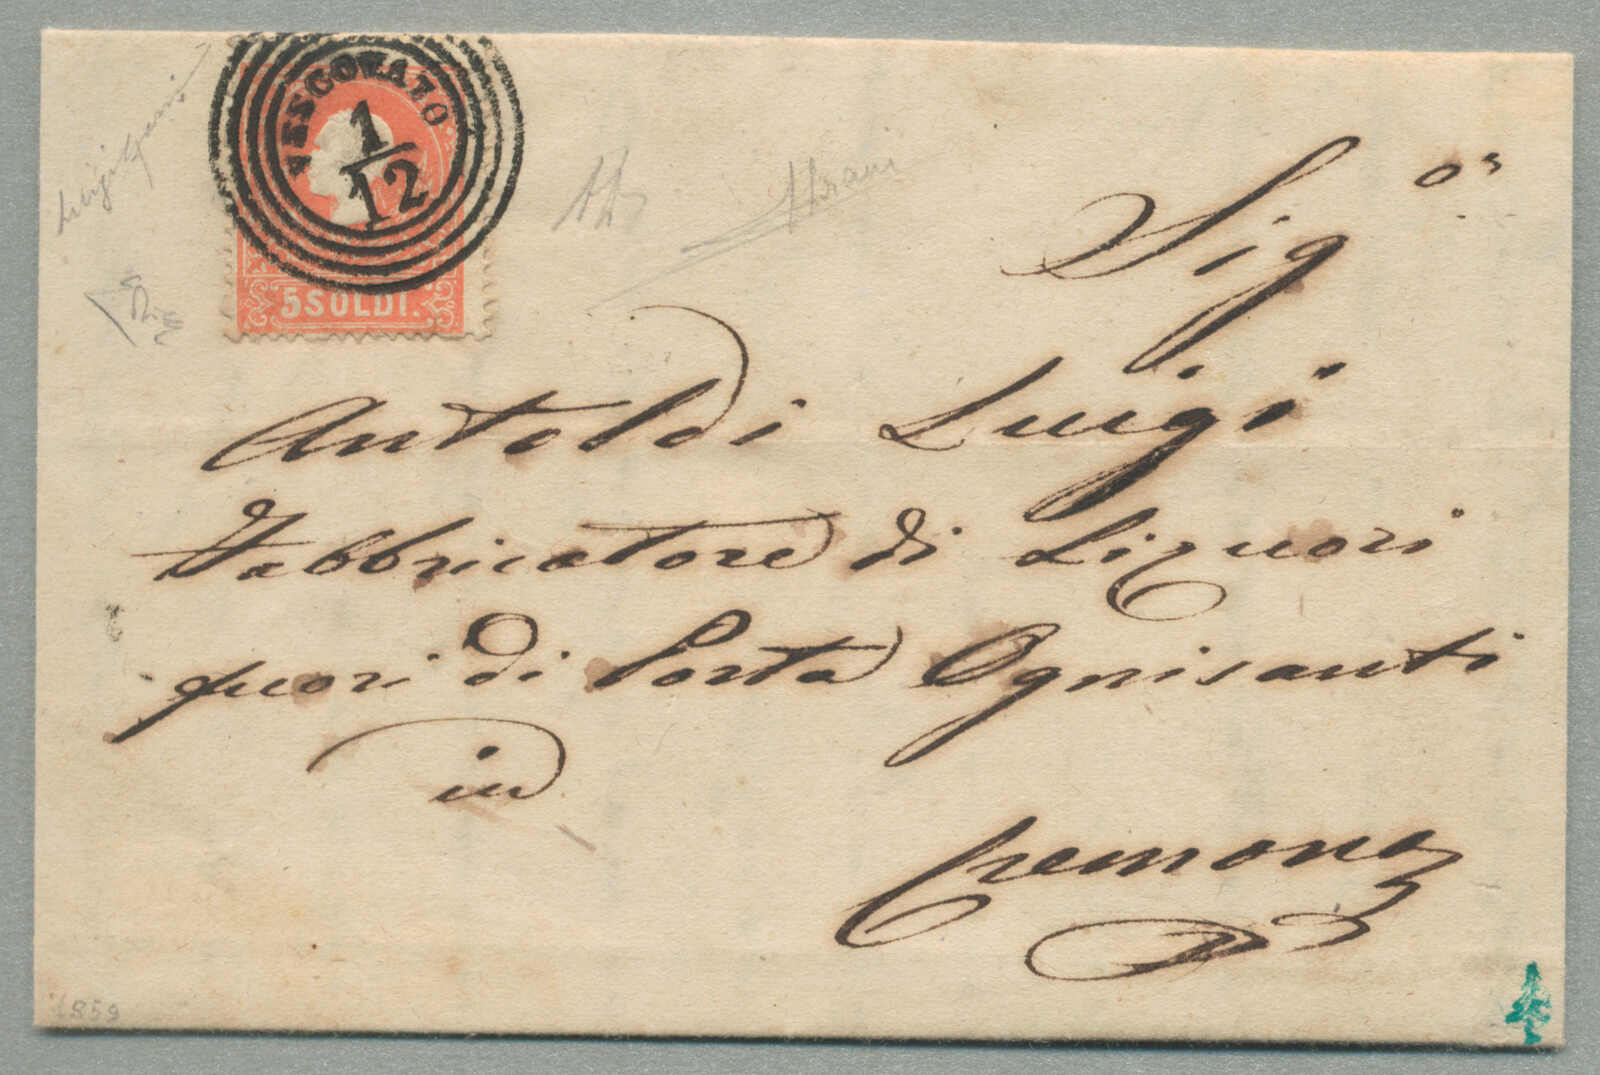 VESCOVATO
1/12
5 SOLDI.
Sig.or
Antoldi Luigi
Fabbricatore di Liquori
fuori di Porta Ognisanti
in
Cremona
1859